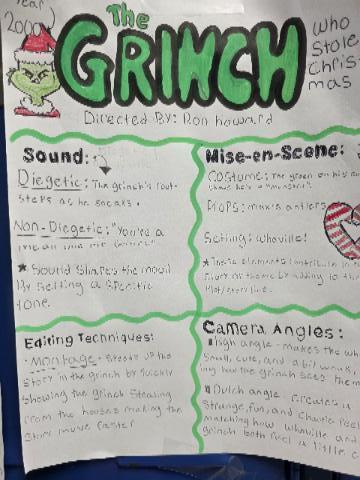 Year
2000
The
GRINCH
Who
Stole
Christ-
mas
Directed By: Ron Howard
Sound:
Diegetic: The grinch's foot-
steps as he sneaks.
Non-Diegetic: "You're a
mean one mr
★ Sound shapes the mood
By setting a specific
tone.
Mise-en-Scene:
Costume: The green on his
shows he's a "monster"
Props: max's antlers
Setting: whoville!
★ These elements contribute
or theme by adding to the
Plot/story line.
Editing Techniques:
• Montage- Breaks up the
story in the grinch by quickly
showing the grinch stealing
from the houses making the
story move faster
Camera Angles:
• high angle- makes the
small, cute, and a bit weak,
how the grinch sees them
• Dutch angle- creates a
strange, fun, and chaotic feel
matching how whoville and
grinch both feel a little